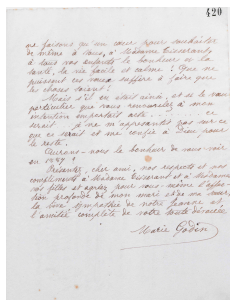 420
ne faisons qu'un cœur pour souhaiter
de même à vous, à Madame Tisserant,
à tous vos enfants le bonheur et la
santé, la vie facile et calme ! Que ne
puissent ces vœux suffire à faire que
les choses soient !
Mais s'il en était ainsi, et si le vœu
particulier que vous renouvelez à mon
intention emportait acte, ce
serait à ne m'
en ce serait et me confie à Dieu pour
le reste.
Aurons-nous le bonheur de vous voir
en 1887 ?
Présentez, cher ami, nos respects et nos
compliments à Madame Tisserant et à Mesdames
vos filles et agréez pour vous-même l'affec-
tion profonde de mon mari et de ma sœur,
la vive sympathie de notre Jeanne et
l'amitié complète de votre toute dévouée
Marie Godin